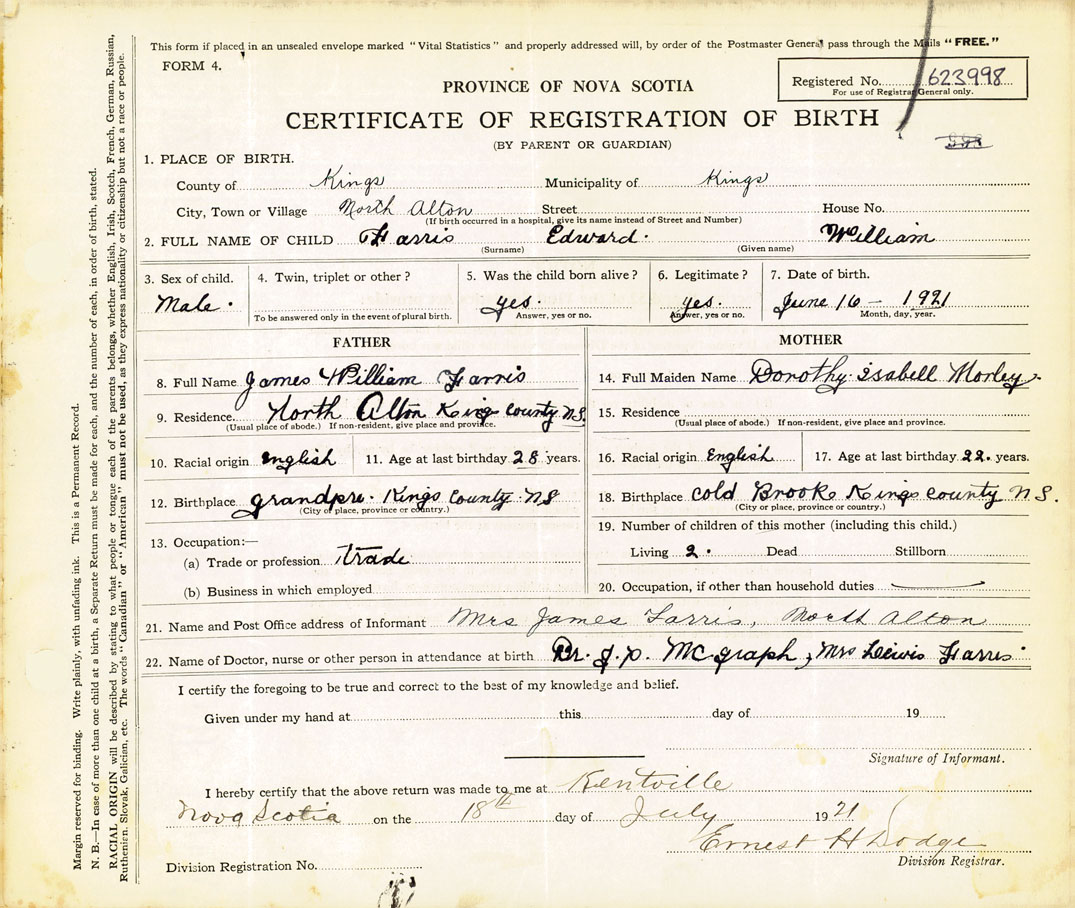 This form if placed in an unsealed envelope marked "Vital Statistics" and properly addressed will, by order of the Postmaster General pass through the Mails "FREE."
FORM 4.
Registered No. 623998
For use of Registrar General only.
PROVINCE OF NOVA SCOTIA
CERTIFICATE OF REGISTRATION OF BIRTH
(BY PARENT OR GUARDIAN)
1. PLACE OF BIRTH.
County of Kings Municipality of Kings
City, Town or Village North Alton Street House No.
(If birth occurred in a hospital, give its name instead of Street and Number)
2. FULL NAME OF CHILD Harris Edward. William
(Surname) (Given name)
3. Sex of child. 4. Twin, triplet or other? 5. Was the child born alive? 6. Legitimate? 7. Date of birth.
Male. yes. yes. June 16 - 1921
To be answered only in the event of plural birth. Answer, yes or no. Answer, yes or no. Month, day, year.
FATHER
8. Full Name James William Harris
9. Residence North Alton Kings county NS.
(Usual place of abode.) If non-resident, give place and province.
10. Racial origin english 11. Age at last birthday 28 years.
12. Birthplace grandpre. Kings County NS
(City or place, province or country.)
13. Occupation:—
(a) Trade or profession trade
(b) Business in which employed
MOTHER
14. Full Maiden Name Dorothy Isabell Morley.
15. Residence
(Usual place of abode.) If non-resident, give place and province.
16. Racial origin English 17. Age at last birthday 22. years.
18. Birthplace cold Brook Kings county N S.
(City or place, province or country.)
19. Number of children of this mother (including this child.)
Living 2. Dead Stillborn
20. Occupation, if other than household duties
21. Name and Post Office address of Informant Mrs James Harris, North Alton
22. Name of Doctor, nurse or other person in attendance at birth Dr. J. P. McGraph, Mrs Lewis Harris
I certify the foregoing to be true and correct to the best of my knowledge and belief.
Given under my hand at this day of 19
Signature of Informant.
I hereby certify that the above return was made to me at Kentville
Nova Scotia on the 18th day of July 1921
Ernest H Dodge
Division Registration No. Division Registrar.
Margin reserved for binding. Write plainly, with unfading ink. This is a Permanent Record.
N. B.—In case of more than one child at a birth, a Separate Return must be made for each, and the number of each, in order of birth, stated.
RACIAL ORIGIN will be described by stating to what people or tongue each of the parents belongs, whether English, Irish, Scotch, French, German, Russian,
Ruthenien, Slovak, Galician, etc. The words "Canadian" or "American" must not be used, as they express nationality or citizenship but not a race or people.